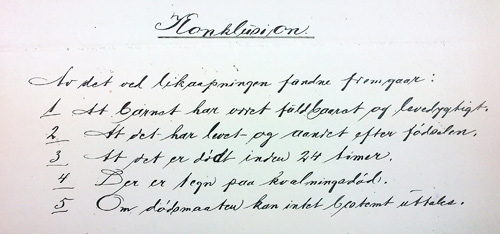 Konklusion.
Av det ved likaapningen fundne fremgaar:
1 At barnet har vært fuldbaaret og levedygtigt.
2 At det har levet og aandet efter födselen.
3 At det er dödt inden 24 timer.
4 Der er tegn paa kvalningsdöd.
5 Om dödsmaaten kan intet bestemt uttales.